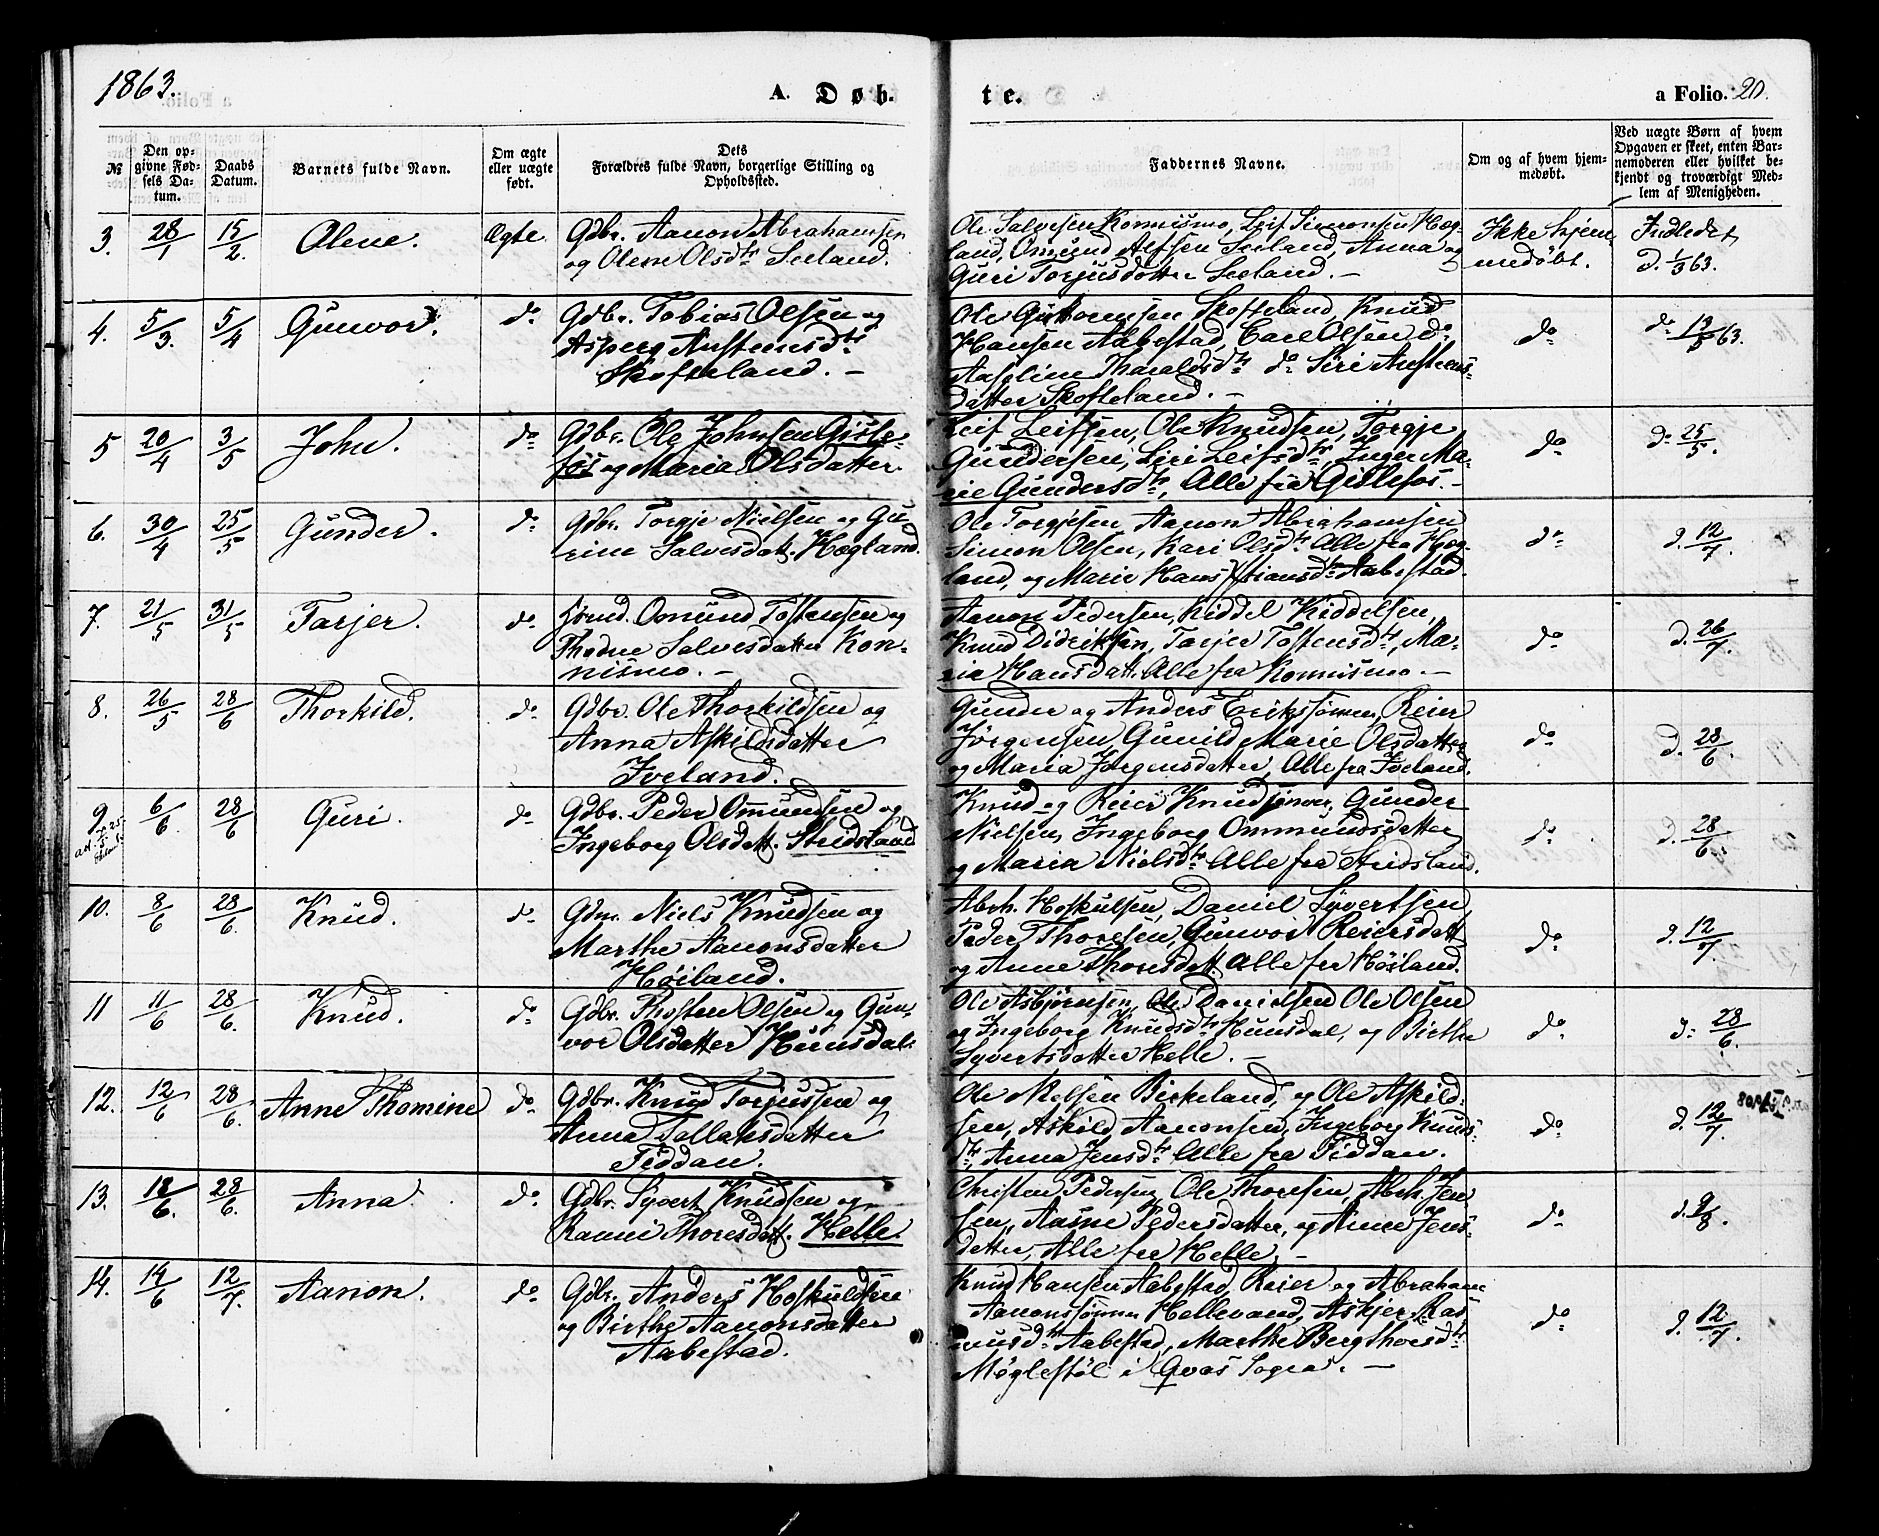 1863.
A. Døb-
te.
a Folio. 20.
№
Den op-
givne Fød-
sels Da-
tum.
Daabs
Datum.
Barnets fulde Navn.
Om ægte
eller uægte
født.
Dets
Forældres fulde Navn, borgerlige Stilling og
Opholdssted.
Faddernes Navne.
Om og af hvem hjem-
medøbt.
Ved uægte Børn af hvem
Opgaven er skeet, enten Bar-
nemoderen eller hvilket be-
kjendt og troværdigt Med-
lem af Menigheden.
3. 28/1 15/2. Olene. Ægte.
Gdbr. Aanon Abrahamsen
og Olene Olsdtr Seeland.
Ole Salvesen Konnismo, Leif Simonsen Høg-
land, Omund Alfsen Seeland, Anna og
Guri Torjusdatter Seeland. -
Ikke hjem-
medøbt.
Indledet
d. 1/3 63.
4. 5/3. 5/4 Gunvor. do
Gdbr. Tobias Olsen og
Asperg Austensdtr
Skofteland. -
Ole Guttormsen Skofteland, Knud
Hansen Aabestad, Carl Olsen do
Aaseline Tharaldsdtr do Siri Austens-
datter Skofteland. -
do
do 13/5 63.
5 20/4 3/5 John. do
Gdbr. Ole Johnsen Gisle-
fos og Maria Olsdatter.
Leif Leifsen, Ole Knudsen, Torgje
Gundersen, Siri Leifsdtr, Inger Ma-
rie Gundersdtr, Alle fra Gislefos. -
do
d. 25/5.
6. 30/4 25/5 Gunder. do
Gdbr. Torgje Nielsen og Gu-
rine Salvesdatt. Høgland.
Ole Torgjesen, Aanon Abrahamsen
Simon Olsen, Kari Olsdtr Alle fra Høg-
land, og Marie Hans Kristiansdtr Aabestad.
do
d. 12/7.
7. 21/5 31/5 Tarjer. do
Omund Tostensen og
Thodne Salvesdatter Kon-
nismo. -
Aanon Pedersen, Kiddel Kiddelsen,
Knud Dideriksen, Tarjer Tostensdtr, Ma-
ria Hansdatt. Alle fra Konnismo. -
do
d. 26/7.
8. 26/5 28/6 Thorkild. do
Gdbr. Ole Thorkildsen og
Anna Askildsdatter
Iveland.
Gunder og Anders Erikssønner, Reier
Jørgensen, Gunild Marie Olsdatter
og Maria Jørgensdatter, Alle fra Iveland.
do
d. 28/6.
9. 6/6 28/6 Guri. do
Gdbr. Peder Ommundsen og
Ingeborg Olsdatt. Stridsland
Knud og Reier Knudsønner, Gunder
Nielsen, Ingeborg Ommundsdatter
og Maria Nielsdtr Alle fra Stridsland.
do
d. 28/6.
10. 8/6 28/6. Knud. do
Gdm. Niels Knudsen og
Marthe Aanonsdatter
Høiland.
Abrh. Hoskulsen, Daniel Syvertsen,
Peder Thoresen, Gunvor Reiersdatt
og Anne Thoresdatt. Alle fra Høiland.
do
d. 12/7.
11 11/6 28/6. Knud. do
Gdbr. Thosten Olsen og Gun-
vor Olsdatter Hunsdal.
Ole Asbjørnsen, Ole Danielsen Ole Olsen
og Ingeborg Knudsdtr Hunsdal, og Birthe
Syvertsdatter Helle. -
do
d: 28/6.
12. 12/6 28/6. Anne Thomine do
Gdbr. Knud Torjussen og
Anna Tellaksdatter
Fiddan.
Ole Nielsen Birkeland, og Ole Askild-
sen, Askild Aanonsen, Ingeborg Knuds-
dtr, Anna Jensdtr Alle fra Fiddan.
do
d. 12/7.
13. 12/6. 28/6. Anna. do
Gdbr. Syvert Knudsen og
Ranni Thoresdatt. Helle.
Christen Pedersen, Ole Thoresen, Abrh. Jen-
sen, Aasne Pedersdatter, og Anne Jens-
datter, Alle fra Helle. -
do
d. 9/8.
14. 14/6 12/7. Aanon. do
Gdbr. Anders Hoskuldsen
og Birthe Aanonsdatter
Aabestad.
Knud Hansen Aabestad, Reier og Abraham
Aanonssønner Hellevand, Askjer Ras-
musdtr Aabestad, Marthe Bergthorsdtr
Møglestøl i Qvas Sogn. -
do
d. 12/7.